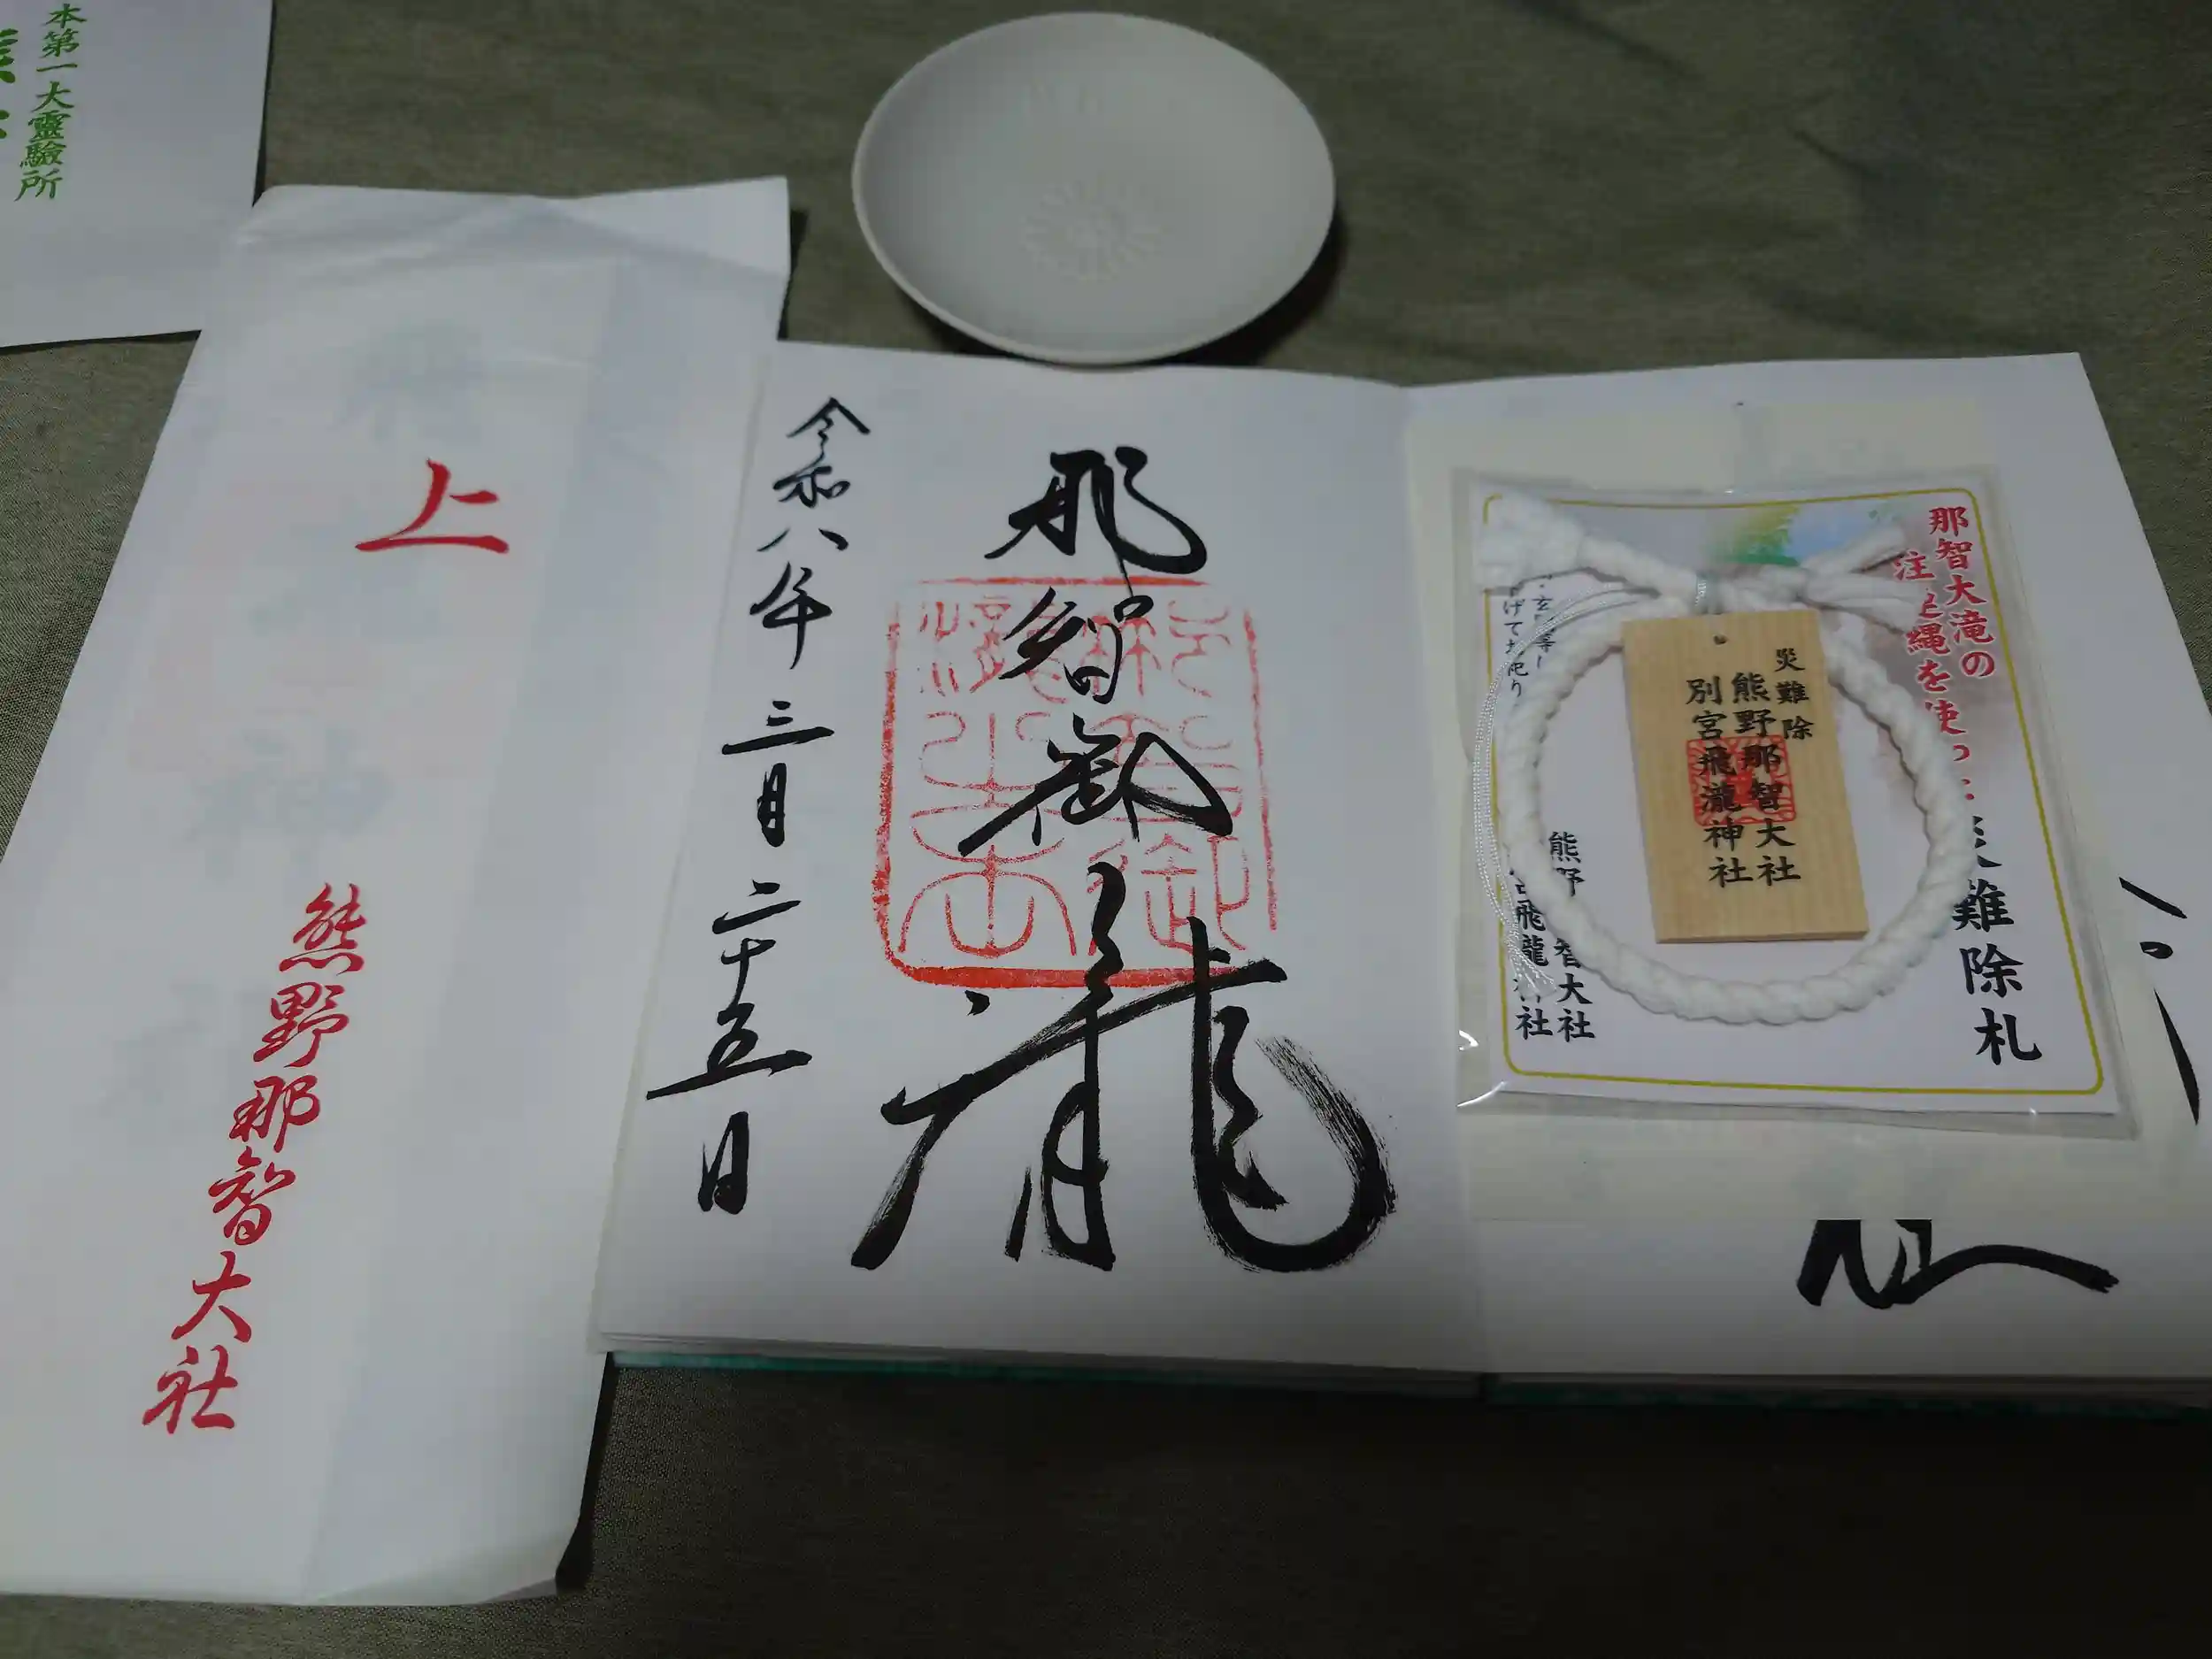 本第一大靈驗所
上
熊野那智大社
那智御瀧
令和八年
三月二十五日
那智大滝の
注連縄を使った
災難除札
災難除
熊野那智大社
別宮飛瀧神社
熊野那智大社